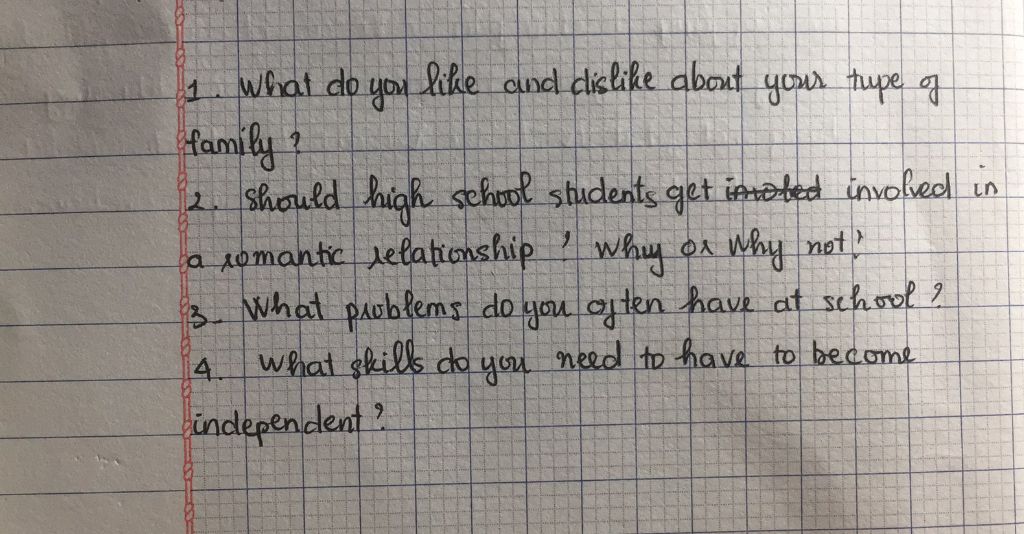 1. What do you like and dislike about your type of
family?
2. Should high school students get involed involved in
a romantic relationship? Why or Why not?
3. What problems do you often have at school?
4. What skills do you need to have to become
independent?